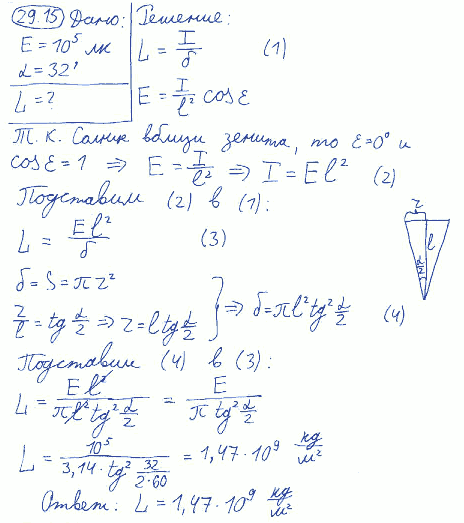 29.15 Дано: Решение:
E = 10⁵ лк
α = 32'
L = ?
L = I/σ (1)
E = I/l² cosε
Т.к. Солнце вблизи зенита, то ε=0° и
cosε = 1 ⇒ E = I/l² ⇒ I = El² (2)
Подставим (2) в (1):
L = El²/σ (3)
σ = S = πr²
r/l = tg α/2 ⇒ r = l tg α/2 } ⇒ σ = πl² tg² α/2 (4)
r
l
α/2
Подставим (4) в (3):
L = El²/(πl² tg² α/2) = E/(π tg² α/2)
L = 10⁵/(3,14 · tg² 32/(2·60)) = 1,47 · 10⁹ кд/м²
Ответ: L = 1,47 · 10⁹ кд/м²